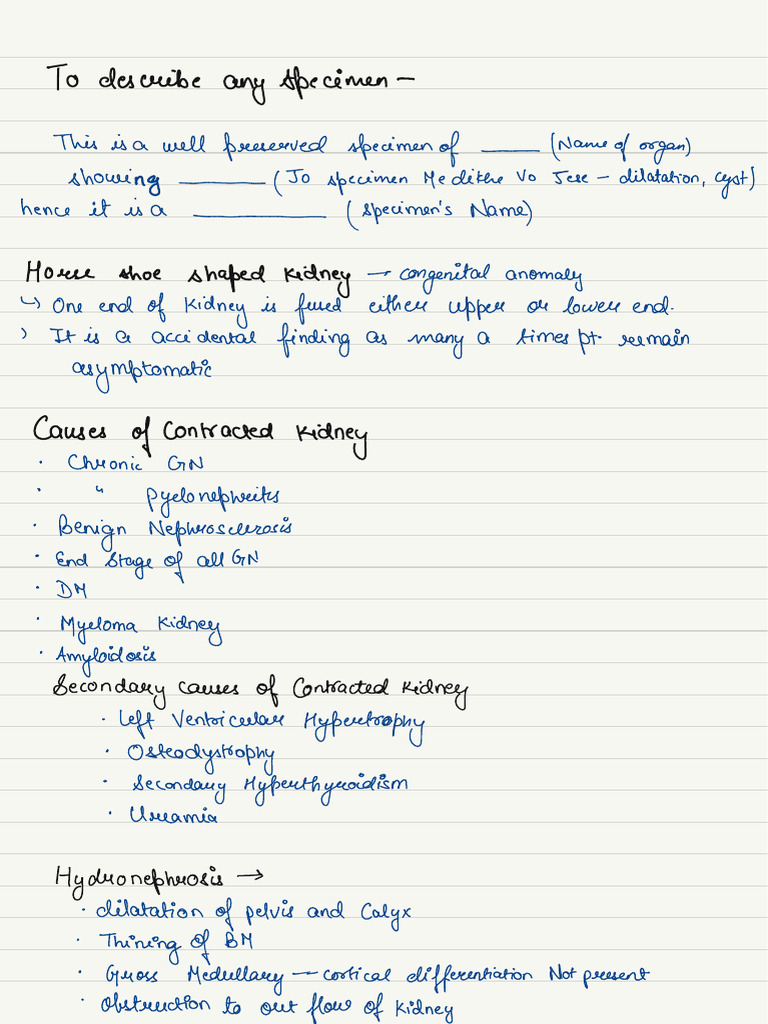 To describe any specimen –
This is a well preserved specimen of _____ (Name of organ)
showing _______ (Jo specimen Me dikhe Vo Jese – dilatation, cyst)
hence it is a ___________ (specimen's Name)
Horse shoe shaped Kidney → congenital anomaly
↳ One end of Kidney is fused either upper or lower end.
› It is a accidental finding as many a times pt. remain
asymptomatic
Causes of Contracted Kidney
· Chronic GN
· " pyelonephritis
· Benign Nephrosclerosis
· End Stage of all GN
· DM
· Myeloma Kidney
· Amyloidosis
Secondary causes of Contracted Kidney
· Left Ventricular Hypertrophy
· Osteodystrophy
· Secondary Hyperthyroidism
· Uraemia
Hydronephrosis →
· dilatation of pelvis and Calyx
· Thining of BM
· Gross Medullary – cortical differentiation Not present
· Obstruction to out flow of Kidney